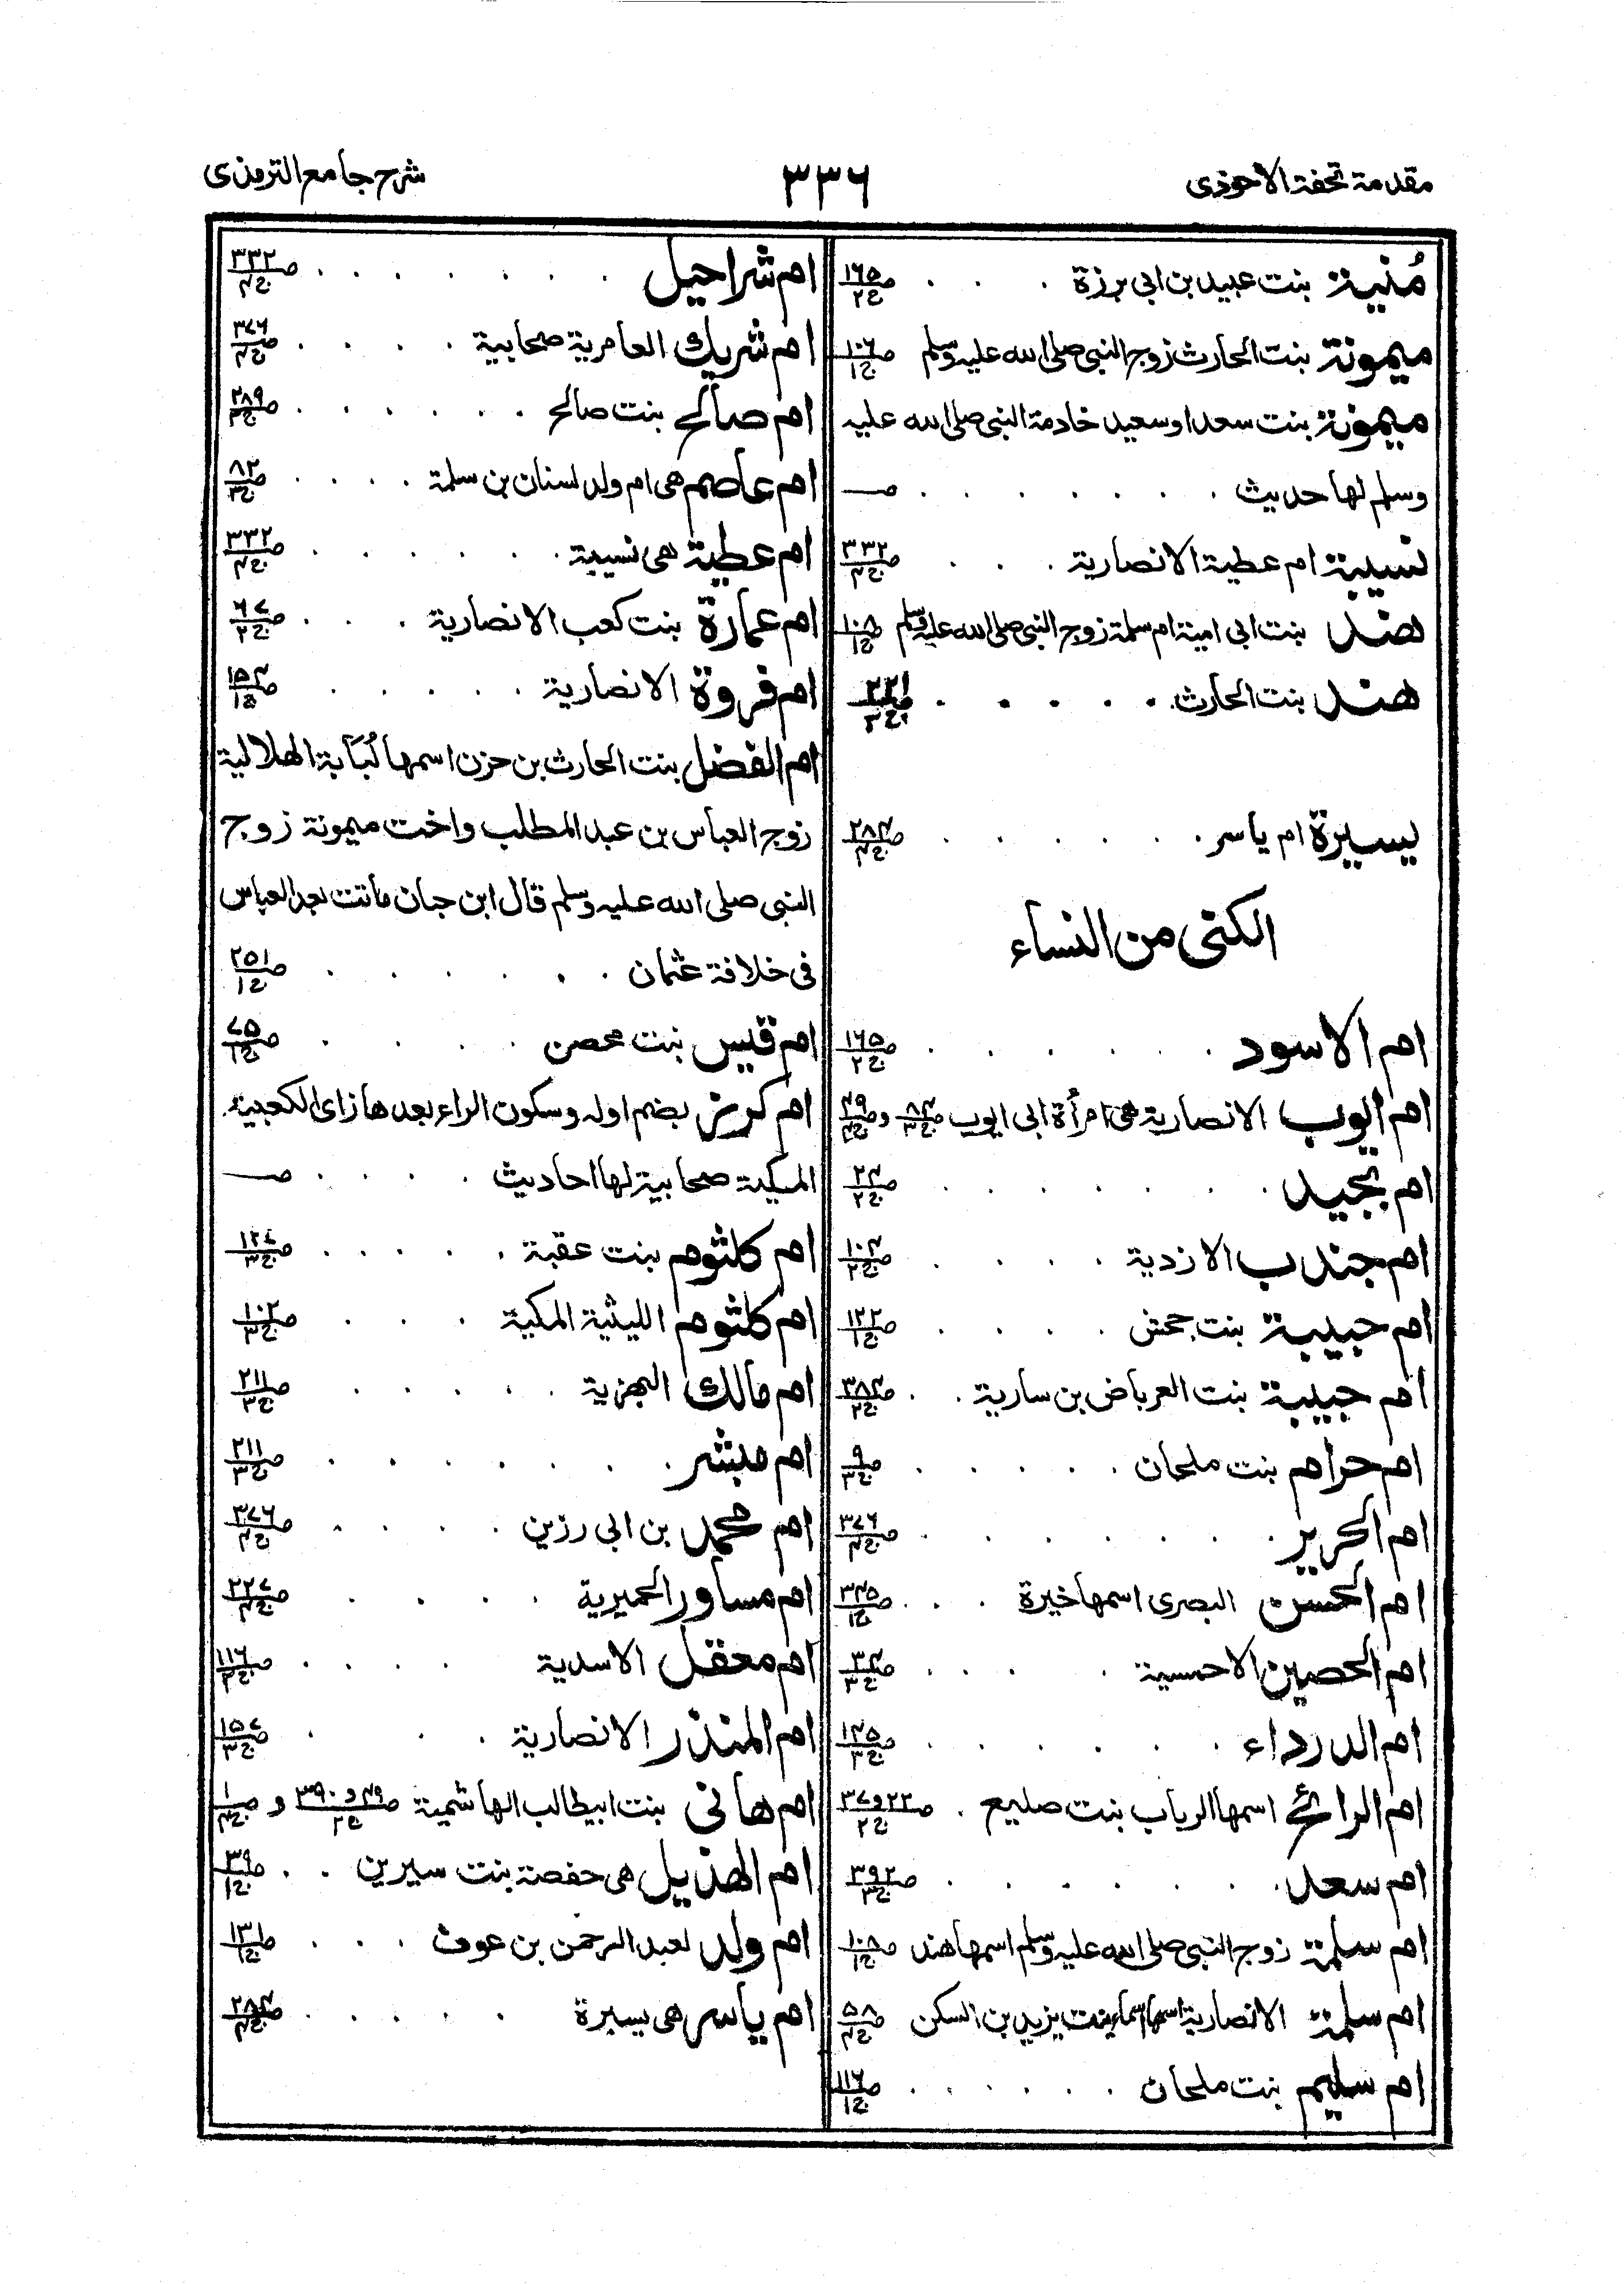 مقدمة تحفة الاحوذى
٣٣٦
شرح جامع الترمذى
مُنية بنت عبيد بن ابى برزة . . . ص١٦٥ ج٢
ميمونة بنت الحارث زوج النبى صلى الله عليه وسلم ص١٠٦ ج١
ميمونة بنت سعد او سعيد خادمة النبى صلى الله عليه
وسلم لها حديث . . . . . . . ص
نسيبة ام عطية الانصارية . . . ص٣٣٢ ج٤
هند بنت ابى امية ام سلمة زوج النبى صلى الله عليه وسلم ص١٠٨ ج١
هند بنت الحارث . . . . . ج٣
يسيرة ام ياسر . . . . . . ص٢٨٤ ج٤
الكنى من النساء
ام الاسود . . . . . . ص١٦٥ ج٢
ام ايوب الانصارية هى امرأة ابى ايوب ص٨٤ ج٣ و ص٤٩ ج٤
ام بجيد . . . . . . . ص٢٤ ج٢
ام جندب الازدية . . . . ص١٠٤ ج٢
ام حبيبة بنت جحش . . . . ص١٢٢ ج١
ام حبيبة بنت العرباض بن سارية . . ص٣٨٤ ج٢
ام حرام بنت ملحان . . . . . ص٩ ج٣
ام الحرير . . . . . . . ص٣٧٦ ج٤
ام الحسن البصرى اسمها خيرة . . . ص٣٤٥ ج١
ام الحصين الاحمسية . . . . ص٣٤ ج٣
ام الدرداء . . . . . . ص١٢٥ ج٣
ام الرائح اسمها الرباب بنت صليع . ص٢٢ و٣٧ ج٢
ام سعد . . . . . . . ص٣٩٢ ج٣
ام سلمة زوج النبى صلى الله عليه وسلم اسمها هند ص١٠٨ ج١
ام سلمة الانصارية اسمها اسماء بنت يزيد بن السكن ص٥٨ ج٤
ام سليم بنت ملحان . . . . . . ص١١٦ ج١
ام شراحيل . . . . . . . ص٣٣٢ ج٤
ام شريك العامرية صحابية . . . . ص٣٧٦ ج٤
ام صالح بنت صالح . . . . . . ص٢٨٩ ج٣
ام عاصم هى ام ولد لسنان بن سلمة . . . . ص٨٢ ج٣
ام عطية هى نسيبة . . . . . . ص٣٣٢ ج٤
ام عمارة بنت كعب الانصارية . . . ص٦٧ ج٢
ام فروة الانصارية . . . . . ص١٥٤ ج١
ام الفضل بنت الحارث بن حزن اسمها لُبَابة الهلالية
زوج العباس بن عبد المطلب واخت ميمونة زوج
النبى صلى الله عليه وسلم قال ابن حبان ماتت بعد العباس
فى خلافة عثمان . . . . . . ص٢٥١ ج١
ام قيس بنت محصن . . . . ص٧٥ ج١
ام كرز بضم اوله وسكون الراء بعدها زاى الكعبية
المكية صحابية لها احاديث . . . . ص
ام كلثوم بنت عقبة . . . . . ص١٢٧ ج٣
ام كلثوم الليثية المكية . . . ص١٠٢ ج٣
ام مالك البهزية . . . . . ص٢١١ ج٣
ام مبشر . . . . . . . ص٢١١ ج٣
ام محمد بن ابى رزين . . . . ص٣٧٦ ج٤
ام مساور الحميرية . . . . ص٣٢٧ ج٤
ام معقل الاسدية . . . . ص١١٦ ج٢
ام المنذر الانصارية . . . ص١٥٧ ج٣
ام هانى بنت ابيطالب الهاشمية ص٤٩ و٣٩٠ ج٢ و ص١ ج٤
ام الهذيل هى حفصة بنت سيرين . . ص٣٩ ج١
ام ولد لعبد الرحمن بن عوف . . . ص١٣١ ج١
ام ياسر هى يسيرة . . . . . ص٢٨٤ ج٤